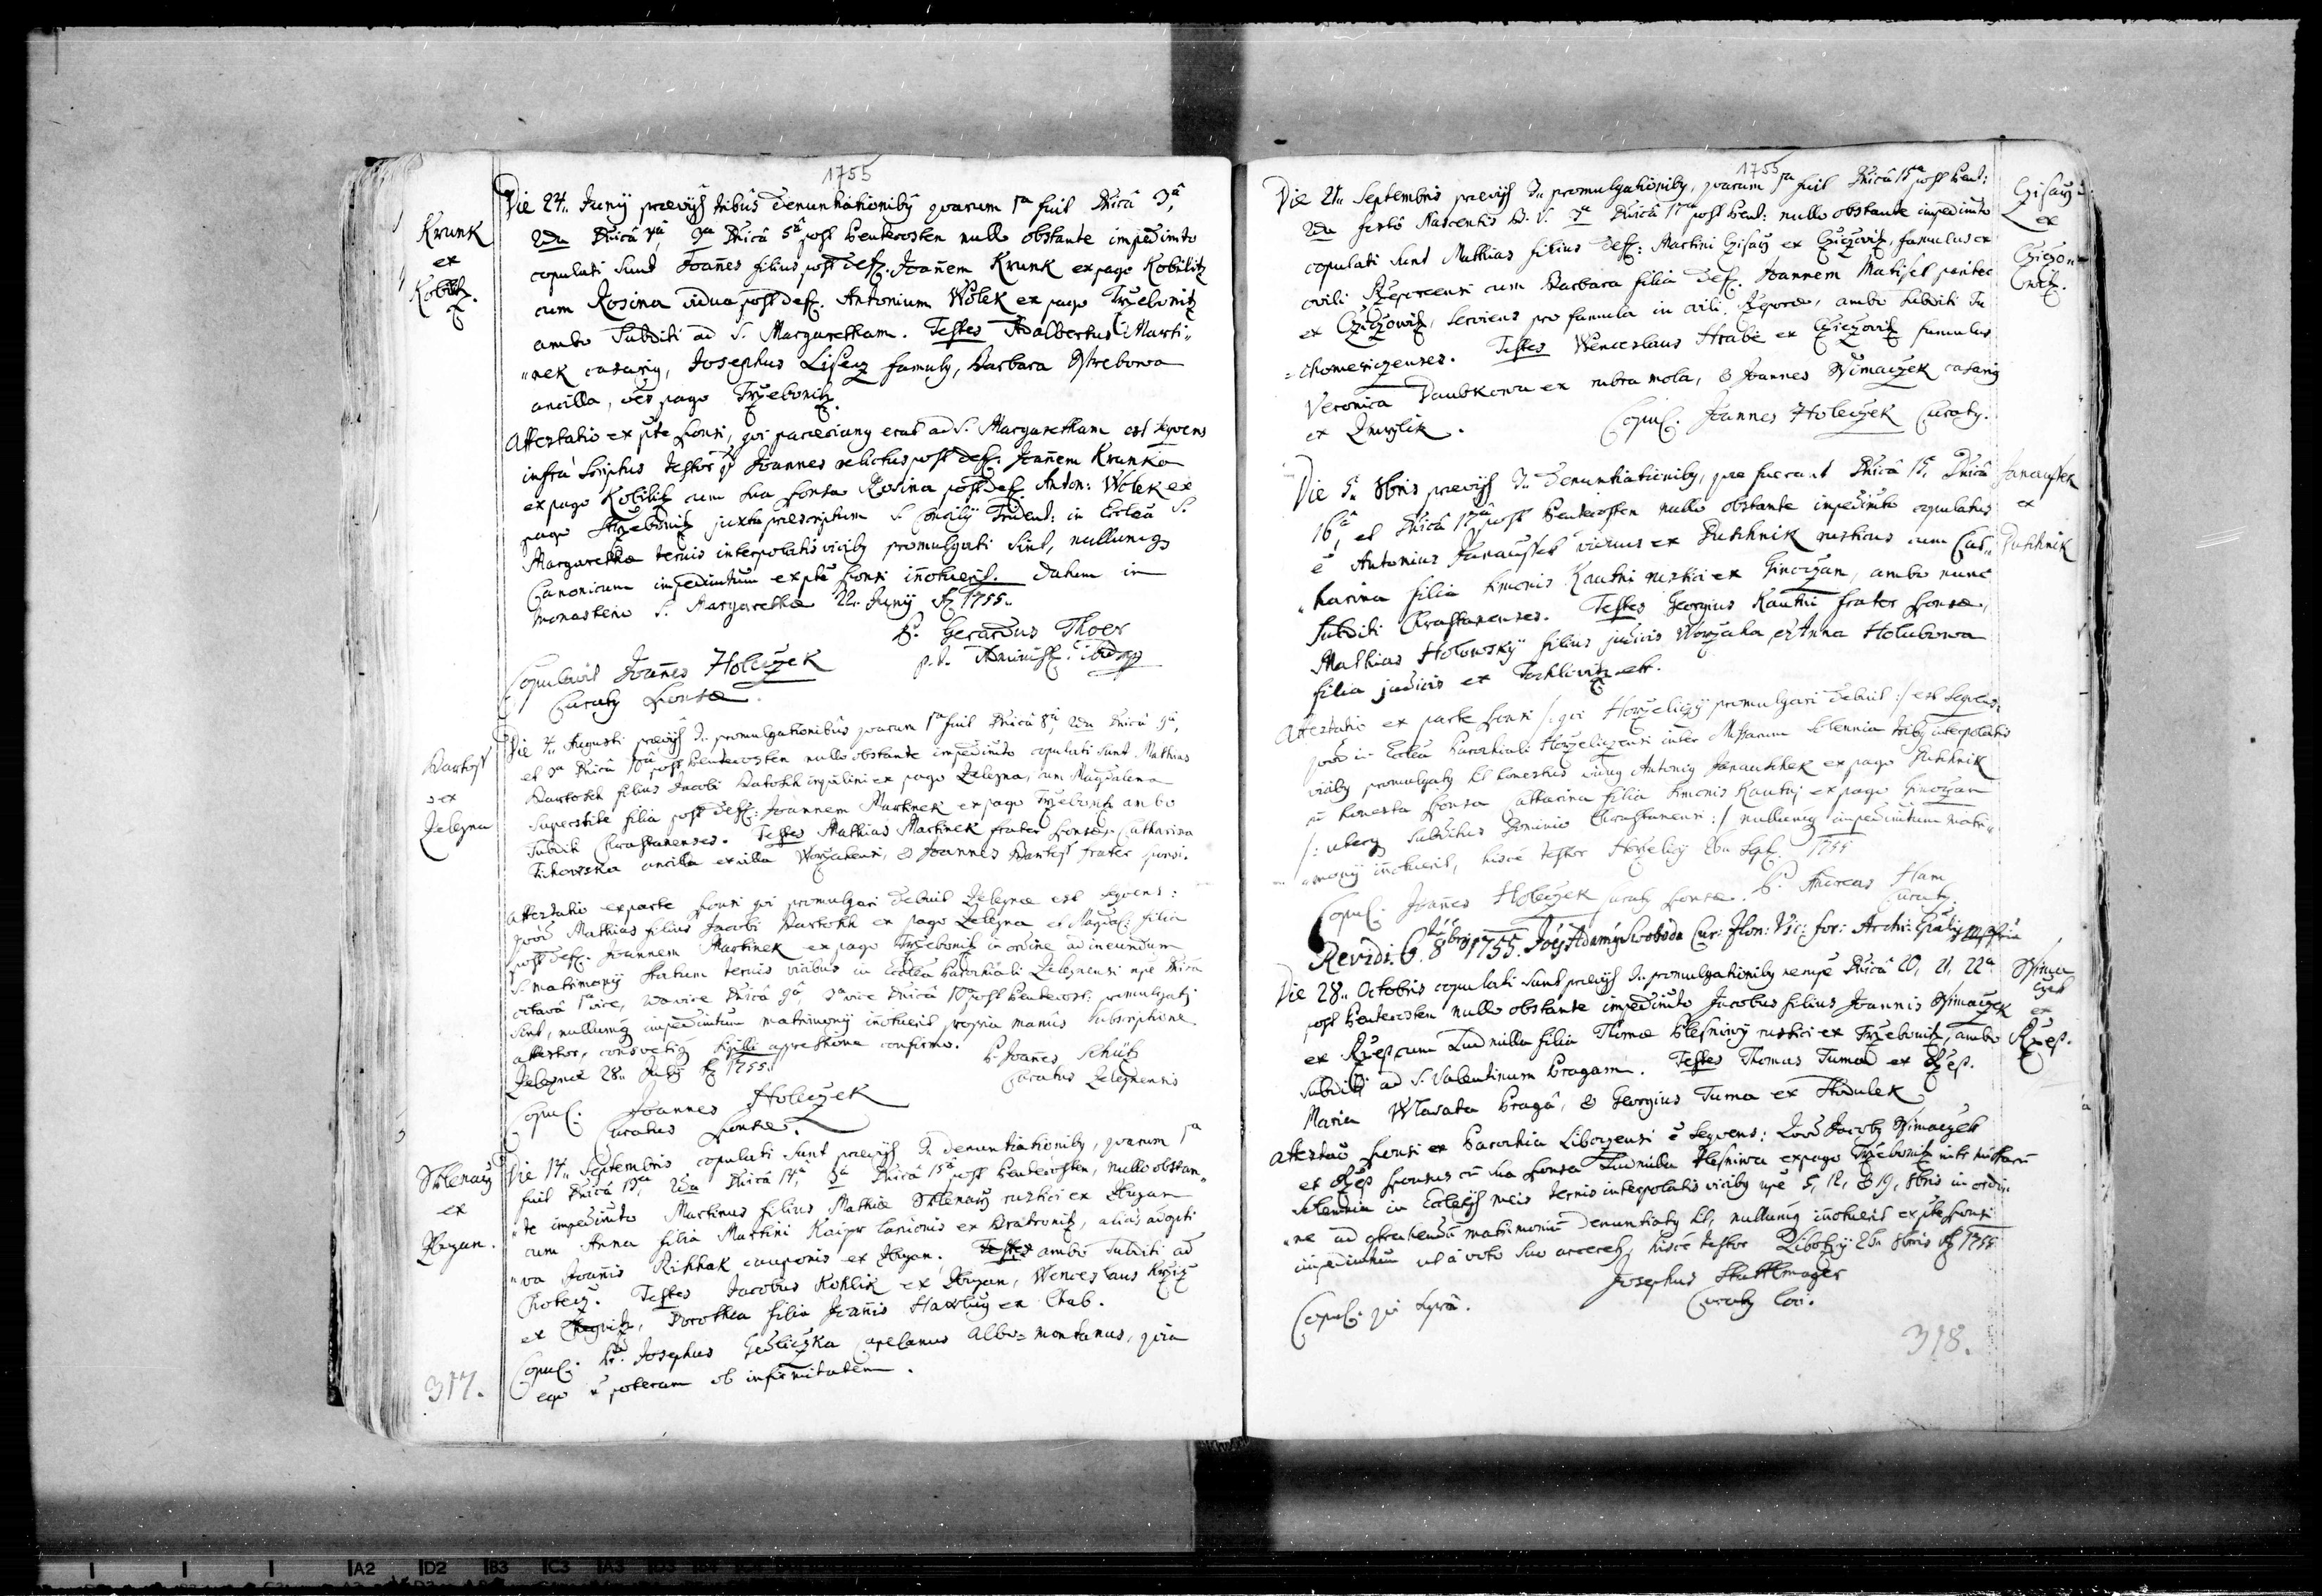 1755
Krunk
ex
Kobilitz.
Die 24. Junij praevijs tribus denuntiationibus quarum 1ma fuit Dnica 3tia,
2da Dnica 4ta, 3tia Dnica 5ta post Pentecosten nullo obstante impedimto
copulati sunt Joanes filius post deff. Joanem Krunk ex pago Kobilitz
cum Rosina vidua post deff. Antonium Wolek ex pago Trzebonitz
ambo Subditi ad S. Margaretham. Testes Adalbertus Marti„
„nek casarig, Josephus Lisenz famulg, Barbara Strebowa
ancilla, oes pago Trzebonitz.
Attestatio ex pte sponsi, qui parociang erat ad S. Margaretham est seqvens
infra scriptus testor qd Joannes relictus post deff. Joanem Krunka
ex pago Kobilitz cum sua sponsa Rosina post deff. Anton: Wolek ex
pago Trzebonitz juxta praescriptum S. Concilij Trident: in Ecclea S.
Margaretha ternis interpolatis vicibg promulgati sint, nullumqz
Canonicum impedimtum ex pte sponsi inotuerit. datum in
Monasterio S. Margaretha 22. Junij 1755.
P. Gerardus Thoer
p. t. Administ. ibidem
Copulavit Joanes Holeczek
Curatg Sponsae.
Bartosch
ex
Zelezna
Die 4. Augusti praevijs 3. promulgationibus quarum 1ma fuit Dnica 8va, 2da Dnica 9na,
et 3a Dnica 10ma post Pentecosten nullo obstante impedimto copulati sunt Mathias
Bartosch filius Jacobi Bartosch inqvilini ex pago Zelezna, cum Magdalena
superstite filia post deff. Joannem Martinek ex pago Trzebonitz ambo
subditi Chrastanenses. Testes Mathias Martinek frater sponsae, Catharina
Tichowska ancilla ex villa Worzechensi, & Joannes Bartosch frater sponsi.
Attestatio ex parte sponsi qui promulgari debuit Zelezna est seqvens:
Quod Mathias filius Jacobi Bartosch ex pago Zelezna et Magdal. filia
post deff. Joannem Martinek ex pago Trzebonitz in ordine ad ineundum
S. matrimonij Statum ternis vicibus in Ecclea Parochiali Zeleznensi npe Dnica
octava 1a vice, 2da vice Dnica 9na, 3a vice Dnica 10ma post Pentecost: promulgatj
sint, nullumqz impedimtum matrimonij inotuerit propria manus subscriptione
attestor, consvetiqz sigilli appressione confirmo.
Zelezna 28. Julij 1755.
P. Joanes Schütz
Curatus Zeleznensis
Copul. Joannes Holeczek
Curatus Sponsae.
Sklenarz
ex
Zbuzan.
Die 14. Septembris copulati sunt praevijs 3. denuntiationibg, quarum 1ma
fuit Dnica 13a, 2da Dnica 14ta, 3a Dnica 15ta post Pentecosten, nullo obstan„
„te impedimto Martinus filius Mathiae Sklenarz rustici ex Zbuzan
cum Anna filia Martini Kaiper lanionis ex Bratronitz, alias adopti
„va Joanis Rikhak cauponis ex Zbuzan. Testes ambo Subditi ad
Chotecz. Testes Jacobus Kohlik ex Zbuzan, Wenceslaus Krziz
ex Chegnitz, Dorothea filia Joanis Hawlicz ex Chab.
Copul. P. Josephus Gedliczka Capelanus Albo=montanus, quia
ego n poteram ob infirmitatem.
317.
1755
Czisarz
ex
Cziczo=
witz.
Die 21. Septembris praevijs 3. promulgationibg, quarum 1ma fuit Dnica 15ta post Pent:
2da festo Nascentis B. V. 3a Dnica 17ma post Pent: nullo obstante impedimto
copulati sunt Mathias filius deff: Martini Czisarz ex Cziczowitz, famulus ex
ovili Rzeporcensi cum Barbara filia deff. Joannem Matissek pariter
ex Cziczowitz, serviens pro famula in ovili Rzepora, ambo Subditi Tu
=chomericzenses. Testes Wenceslaus Hrabie ex Cziczowitz famulus
Veronica Daubkowa ex rubra mola, & Joannes Ssimaczek casarig
ex Zmrzlik.
Copul. Joannes Holeczek Curatg.
Janaussek
ex
Duschnik
Die 5. 8bris praevijs 3. denuntiationibg, quae fuerunt Dnica 15, Dnica
16ta, et Dnica 17ma post Pentecosten nullo obstante impedimto copulatus
e Antonius Janaussek viduus ex Duschnik rusticus cum Cat„
„harina filia Simonis Kautni rustici ex Ginoczan, ambo nunc
Subditi Chrastanenses. Testes Georgius Kautni frater sponsae,
Mathias Holowsky filius judicis Worzecha, et Anna Holubowa
filia judicis ex Tachlowitz ett.
Attestatio ex parte sponsi /: qui Horzelicij promulgari debuit :/ est seqvens:
quod in Ecclea Parochiali Horzeliczensi inter Missarum solennia tribg interpolatis
vicibg promulgatg sit honestus vidug Antonig Janauschek ex pago Duschnik
cu honesta sponsa Catharina filia Simonis Kautnj ex pago Ginoczan
/: uterqz subditus Dominio Chrastanensi :/ nullumqz impedimtum matri„
„monij inotuerit, hisce testor Horzelicij 26. Sept. 1755
P. Andreas Ham
Curatg.
Copul. Joanes Holeczek Curatg sponsae.
Revidi. 6. 8bris 1755. Joes Adamg Swoboda Cur: Hon: Vic: for: Archi: Epalis mppria
Ssima
czek
ex
Rzep.
Die 28. Octobris copulati sunt praevijs 3. promulgationibg nempe Dnica 20, 21, 22a
post Pentecosten nullo obstante impedimto Jacobus filius Joannis Ssimaczek
ex Rzep, cum Ludmilla filia Thomae Plesniwy rustici ex Trzebonitz, ambo
subditi ad S. Valentinum Pragam. Testes Thomas Tuma ex Rzep.
Maria Wlasata Praga, & Georgius Tuma ex Stodulek
Attestao sponsi ex Parochia Liboczensi e seqvens: Quod Jacobg Ssimaczek
ex Rzep sponsus cu sua sponsa Ludmilla Plesniwa ex pago Trzebonitz intr missaru
solennia in Ecclesijs meis ternis interpolatis vicibg npe 5, 12, & 19, 8bris in ordi„
„ne ad contrahendu matrimoniu denuntiatg sit, nullumqz inotuerit ex pte sponsi
impedimtum ut a voto suo arceretr, hisce testor Libotzij 26. 8bris 1755
Josephus Stattlmager
Curatg loci.
Copul. qui supra.
318.